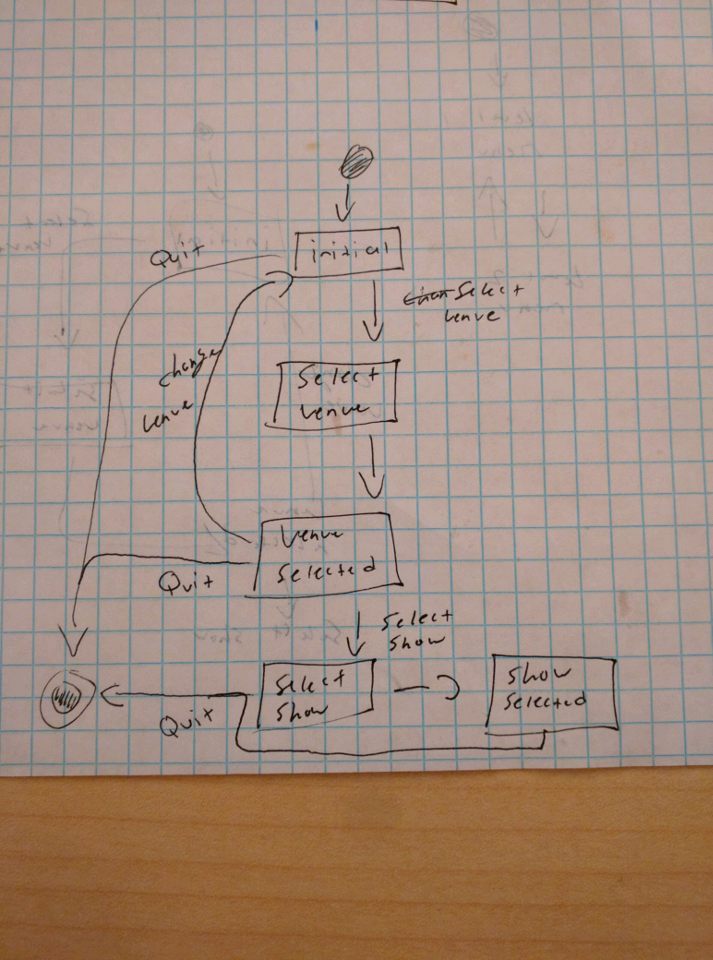 Quit
initial
Select
venue
Select
venue
change
venue
Venue
Selected
Quit
Select
Show
Select
Show
Show
Selected
Quit